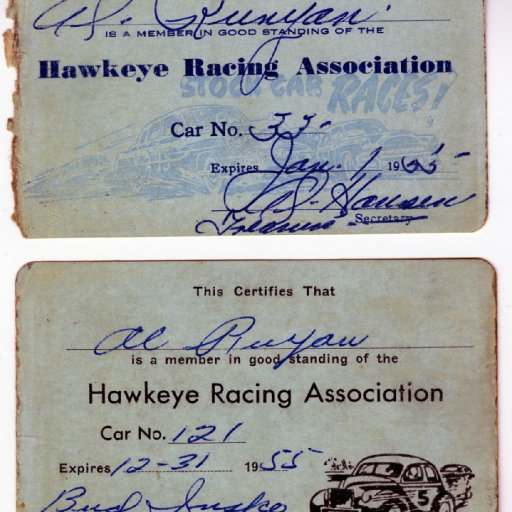 Al. Runyan.
IS A MEMBER IN GOOD STANDING OF THE
Hawkeye Racing Association
STOCK CAR RACES!
Car No. 55-
Expires Jan. 1 1955
Hansen
Treasurer Secretary
This Certifies That
Al Runyan
is a member in good standing of the
Hawkeye Racing Association
Car No. 121
Expires 12-31 1955
Bud
5